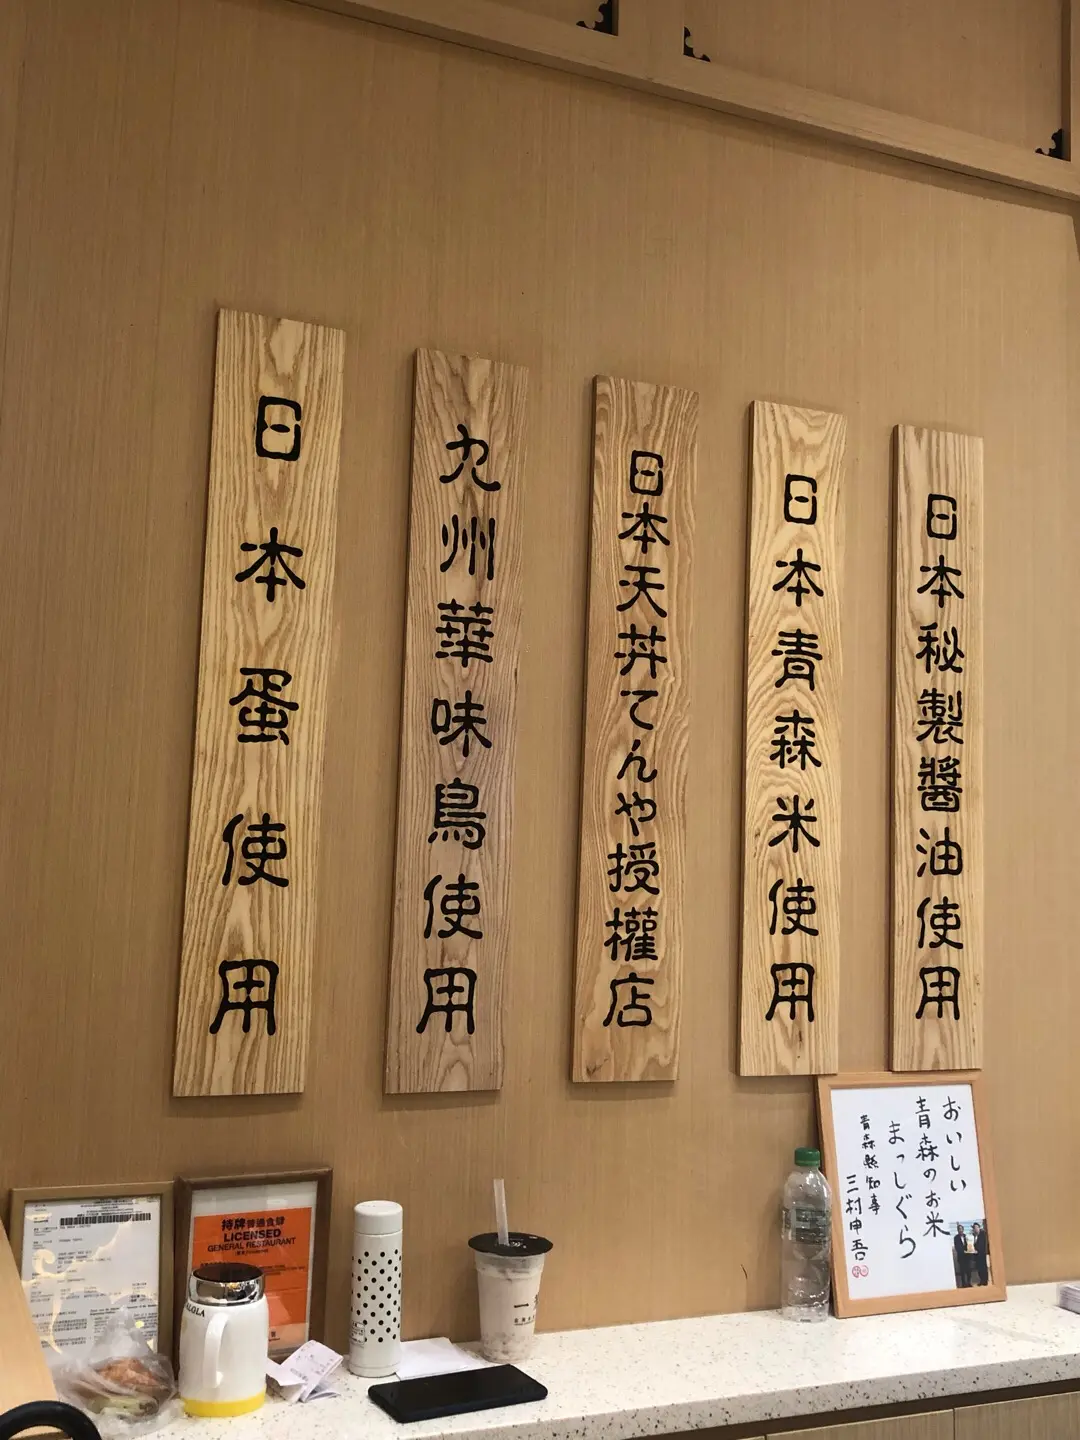 日本秘製醬油使用
日本青森米使用
日本天丼てんや授權店
九州華味鳥使用
日本蛋使用
おいしい
青森のお米
まっしぐら
青森縣知事
三村申吾
持牌普通食肆
LICENSED
GENERAL RESTAURANT